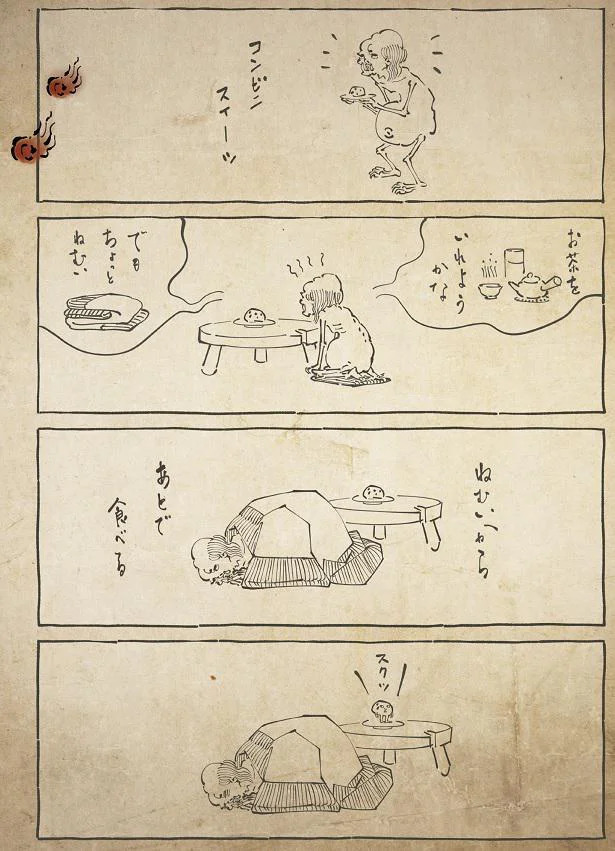 コンビニ
スイーツ
お茶を
いれよう
かな
でも
ちょっと
ねむい
ねむいから
あとで
食べる
スクッ